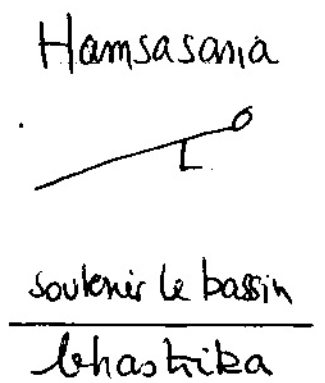 Hamsasana
soutenir le bassin
bhastrika